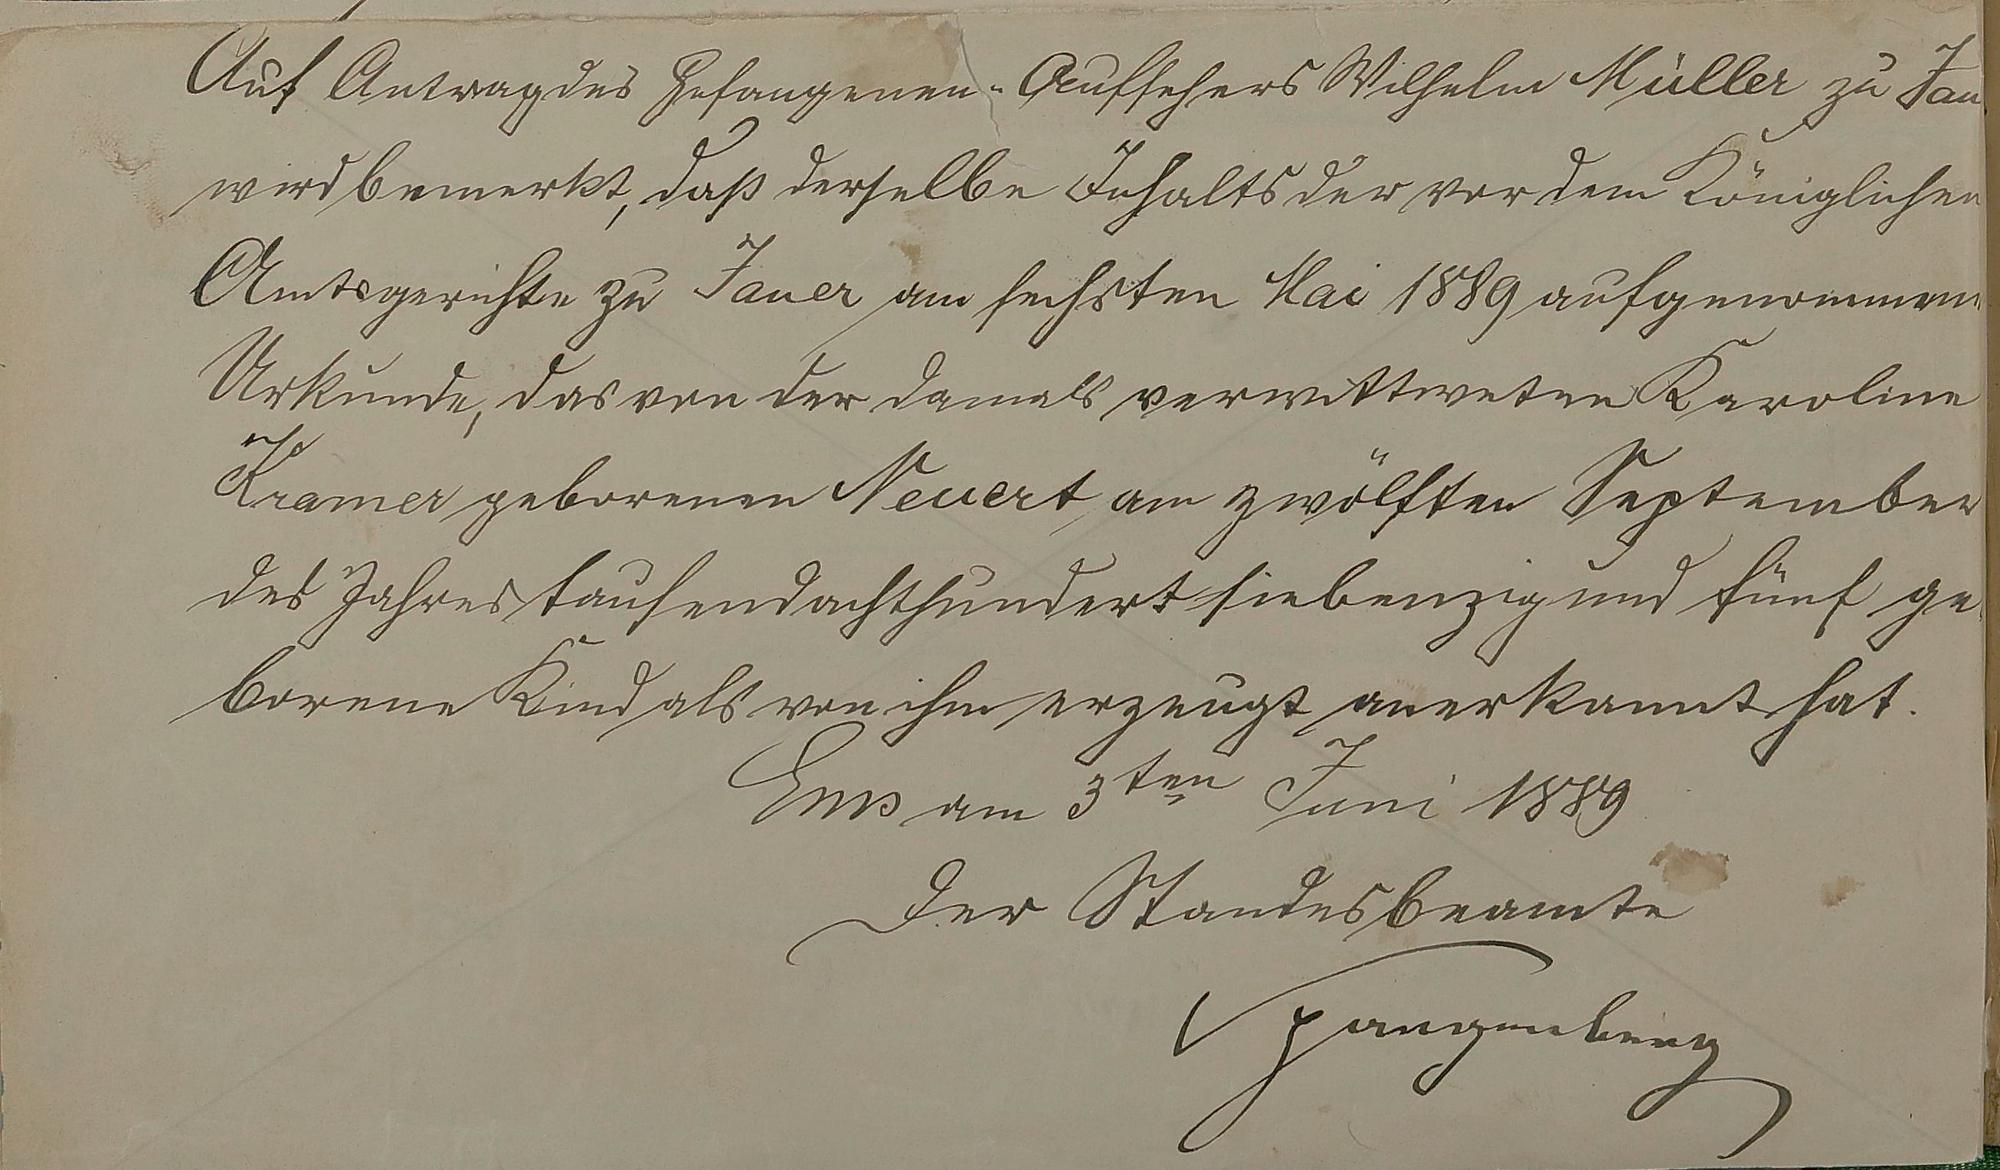 Auf Antrag des Gefangenen-Aufsehers Wilhelm Müller zu Jau
wird bemerkt, daß derselbe Inhalts der vor dem Königlichen
Amtsgerichte zu Jauer am sechsten Mai 1889 aufgenommenen
Urkunde, das von der damals verwittweten Karoline
Kramer geborenen Neuert am zwölften September
des Jahres tausendachthundert siebenzig und fünf ge
borene Kind als von ihm erzeugt anerkannt hat.
Ems am 3ten Juni 1889
Der Standesbeamte
Spangenberg